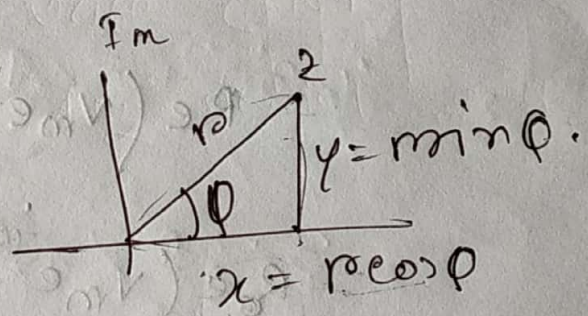 Im
z
r
φ
y = r sin φ.
x = r cos φ